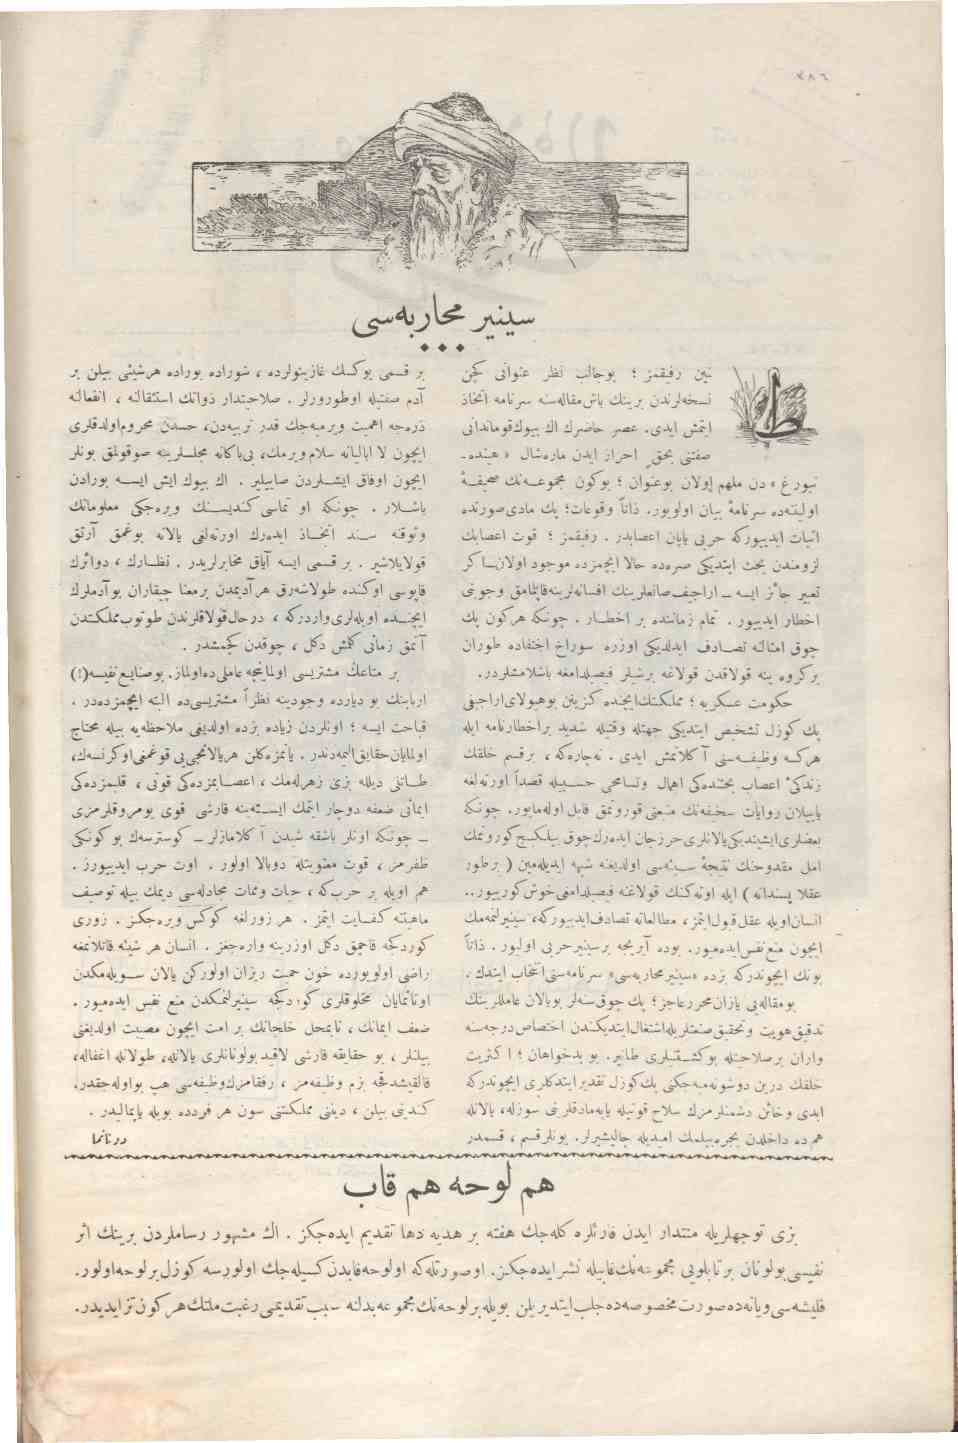 ٧٨٦
سینیر محاربه‌سی
طنین رفیقمز ؛ بوجالب نظر عنوانی کچن
نسخه‌لرندن برینك باش‌مقاله‌سنه سرنامه اتخاذ
ایتمش ایدی. عصر حاضرك اك بیوك قوماندانی
صفتنی بحق احراز ایدن مارەشال « هیندە‌ـ
نبورغ » دن ملهم اولان بوعنوان ؛ بوکون مجموعه‌نك صحیفهٔ
اولیسنه‌ده سرنامهٔ بیان اولویور. ذاتاً وقوعات؛ پك مادی‌صورتده
اثبات ایدییورکه حربی یاپان اعصابدر . رفیقمز ؛ قوت اعصابك
لزومندن بحث ایتدیکی صره‌ده حالا ایچمزده موجود اولان ـ اکر
تعبیر جائز ایسه ـ اراجیف‌صانعلرینك افسانه‌لرینه‌قاپلمامق وجوبنی
اخطار ایدییور . تمام زماننده بر اخطار . چونکه هرکون پك
چوق امثالنه تصادف ایدلدیکی اوزره سوراخ اختفاده طوران
برکروه ینه قولاقدن قولاغه برشیلر فیصیلدامغه باشلامشلردر.
حکومت عسکریه ؛ مملکتك‌ایچنده کزینن بوهیولای‌اراجیفی
پك کوزل تشخیص ایتدیکی جهتله وقتیله شدید براخطارنامه ایله
هرکسه وظیفه‌سنی آکلاتمش ایدی . نه‌چاره‌که ، برقسم خلقك
زنده‌کئ اعصاب بحثنده‌کی اهمال وتسامحی حسبیله قصداً اورته‌لغه
یاییلان روایات سخیفه‌نك منبعنی قوروتمق قابل اوله‌مایور. چونکه
بعضلری‌ایشیتدیکی‌یالانلری حرزجان ایده‌رك‌چوق بیلکیج کورونمك
امل مقدوحنك نتیجهٔ سیئه‌سی اولدیغنه شبهه ایدیله‌مین ( برطور
عقلا پسندانه ) ایله اوته‌کنك قولاغنه فیصیلدامغی‌خوش‌کورییور..
انسان‌اویله عقل‌قبول‌ایتمز ، مطالعاته تصادف‌ایدییورکه، سینیرلنمه‌مك
ایچون منع‌نفس‌ایده‌میور. بوده آیریجه برسینیرحربی اولیور . ذاتاً
بونك ایچوندرکه بزده «سینیرمحاربه‌سی» سرنامه‌سنی‌انتخاب ایتدك .
بومقاله‌یی یازان‌محررعاجز؛ پك چوق‌سنه‌لر بویالان عامللرینك
تدقیق‌هویت وتحقیق‌صنعتلریله‌اشتغال‌ایتدیکندن اختصاص‌درجه‌سنه
واران برصلاحیتله بوکشیلری طانیر. بو بدخواهان ؛ اکثریت
خلقك درین دوشونه‌میه‌جکنی پك‌کوزل تقدیرایتدکلری ایچوندرکه
ابدی وخائن دشمنلرمزك سلاح قوتیله یاپه‌مادقلرینی سوزله، یالانله
هم‌ده داخلدن یچره‌بیلمك امیدیله چالیشیرلر. بونلرقسم ، قسمدر
بر قسمی یوکسك غازینولرده ، شوراده بوراده هرشیئی بیلن بر
آدم صفتیله اوطورورلر . صلاحیتدار ذواتك استثقالنه ، انفعالنه
ذره‌جه اهمیت ویرمیه‌جك قدر تربیه‌دن، حسدن محروم‌اولدقلری
ایچون لا ابالیانه سلام ویرمك، بی‌باکانه مجلسلرینه صوقولمق بونلر
ایچون اوفاق ایشلردن صاییلیر . اك بیوك ایش ایسه بورادن
باشلار. چونکه او تماسی کندیسنك ویره‌جکی معلوماتك
وثوقنه سند اتخاذ ایده‌رك اورته‌لغی یالانه بوغمق آرتق
قولایلاشیر . بر قسمی ایسه آیاق مخابرلریدر. نظارك ، دوائرك
قاپوسی اوکنده طولاشه‌رق هرآدیمدن برمعنا چیقاران بوآدملرك
ایچنده اویله‌لری‌واردرکه ، درحال‌قولاقلرندن طوتوب‌مملکتدن
آتمق زمانی کلمش دکل ، چوقدن کچمشدر .
بر متاعك مشتریسی اولماینجه عاملی‌ده‌اولماز. بوصنایع‌نفیسه(!)
اربابنك بو دیارده وجودینه نظراً مشتریسی‌ده البته ایچمزده‌در .
قباحت ایسه ؛ اونلردن زیاده بزده اولدیغی ملاحظه‌یه بیله محتاج
اولمایان‌حقایق‌الیمه‌دندر . یانمزه‌کلن هریالانجی‌یی قوغمغی‌اوکرنسه‌ك،
طاتلی دیلله بزی زهرله‌مك ، اعصابمزده‌کی قوتی ، قلبمزده‌کی
ایمانی ضعفه دوچار ایتمك ایسته‌ینه قارشی قوی یومروقلرمزی
ـ چونکه اونلر باشقه شیدن آکلامازلر ـ کوسترسه‌ك بو کونکی
ظفرمز ، قوت معنویتله دوبالا اولور . اوت حرب ایدییورز .
هم اویله بر حرب‌که ، حیات وممات مجادله‌سی دیمك بیله توصیف
ماهیتنه کفایت ایتمز . هر زورلغه کوکس ویره‌جکز . زوری
کوردکجه قاچمق دکل اوزرینه واره‌جغز . انسان هر شیئه قاتلانمغه
راضی اولویورده خون حمیت ریزان اولورکن یالان سویله‌مکدن
اوتانمایان مخلوقلری کوردکجه سینیرلنمکدن منع نفس ایده‌میور .
ضعف ایمانك ، نابمحل خلجانك بر امت ایچون مصیبت اولدیغنی
بیلنلر ، بو حقایقه قارشی لاقید بولونانلری یالانله، طولانله اغفاله،
قالقیشدقجه بزم وظیفه‌مز ، رفقامزك‌وظیفه‌سی هپ بواوله‌جقدر.
کندینی بیلن ، دیننی مملکتنی سون هر فردده بویله یاپمالیدر .
دورنانما
هم لوحه هم قاب
بزی توجهلریله منتدار ایدن قارئلره کله‌جك هفته بر هدیه دها تقدیم ایده‌جکز . اك مشهور رساملردن برینك اثر
نفیسی بولونان بر تابلویی مجموعه‌نك‌قابیله نشرایده‌جکز. اوصورتله‌که اولوحه‌قابدن‌کسیله‌جك اولورسه کوزل‌برلوحه‌اولور.
قلیشه‌سی‌ویانه‌ده‌صورت مخصوصه‌ده‌جلب‌ایتدیریلن بویله برلوحه‌نك‌مجموعه‌یه‌بدلنه سبب‌تقدیمی‌رغبت‌ملتك‌هرکون‌تزایدیدر.